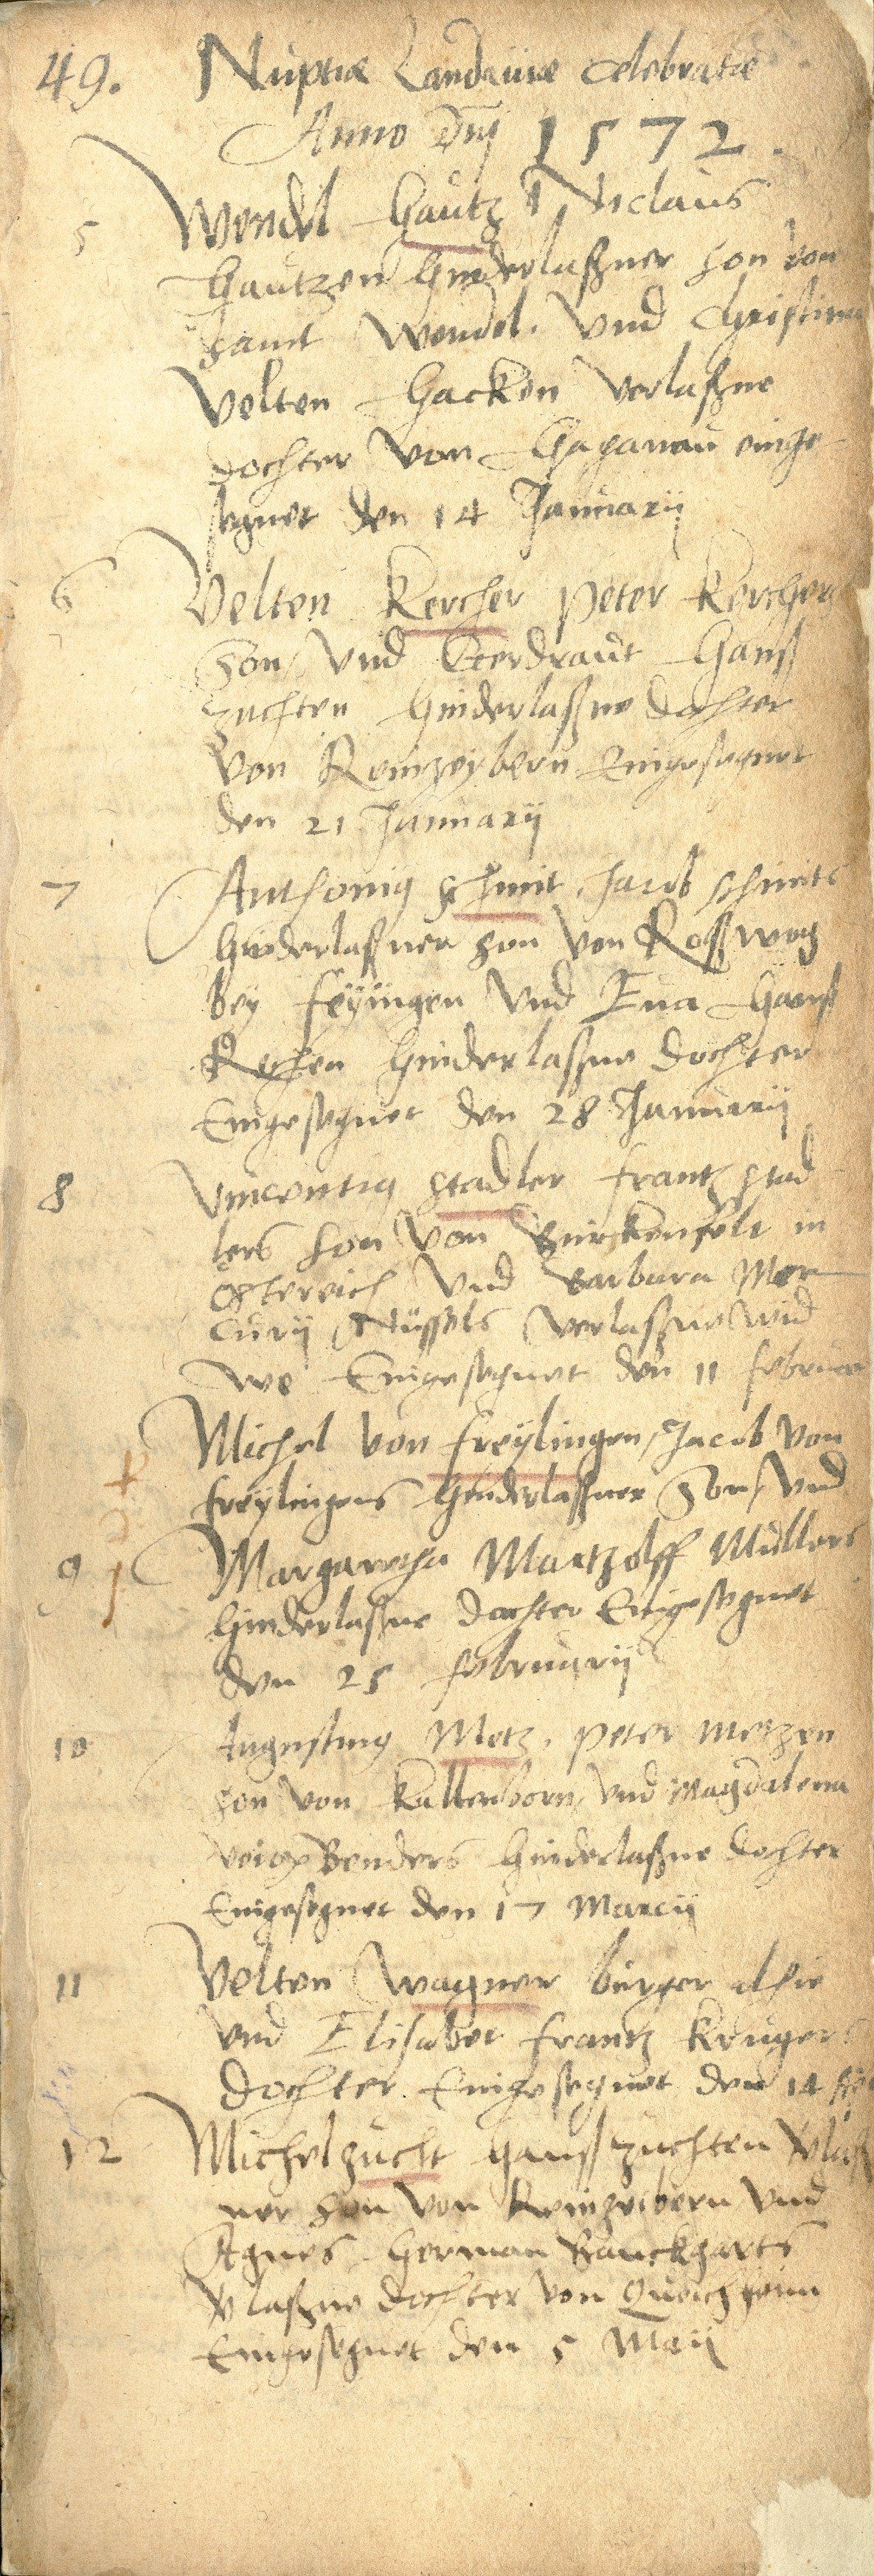 49. Nuptiæ Landauiæ celebratæ
Anno Dnj 1572.
5 Wendel Hautz Niclaus
Hautzen hinderlaßner son von
Sanct Wendel. Vnd Christina
Velten Hacken verlaßne
dochter von Hagenau einge-
segnet den 14 Januarij
6 Velten Kercher Peter Kerchers
Son, vnd Gerdraut Hanß
Zuchten hinderlaßne dochter
von Reinzeybern Eingesegnet
den 21 Januarij
7 Anthonij schmit, Jacob schmits
hinderlaßner son von Roßwag
bey feyingen vnd Eua Hanß
hinderlaßne dochter
Eingesegnet den 28 Januarij
8 Vincentig stadler frantz stad
lers son von Birckenfelt in
Ostereich vnd barbara Mer
curij Nüssels verlaßne wid
we Eingesegnet den 11 februar
Michel von freylingen, Jacob von
freylingens hinderlaßner Son, vnd
9 Margaretha Martzolff Müllers
hinderlaßne dochter Eingesegnet
den 25 februarij
10 Augusting Metz. Peter metzen
son von Kaltenborn, vnd Magdalena
Benders hinderlaßne dochter
Eingesegnet den 17 Marcij
11 Velten Wagner burger alhie
vnd Elisabet frantz Krugers
dochter. Eingesegnet den 14
12 Michel zucht Hanß zuchten vlaß
ner son von Reinzebern vnd
Agnes Herman Banckharts
vlaßne dochter von Queichheim
Eingesegnet den 5 Maij